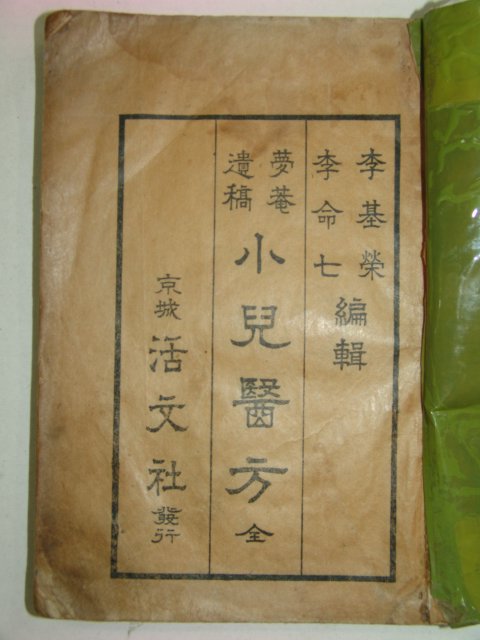 李基榮
李命七
編輯
夢菴
遺稿
小兒醫方全
京城
活文社
發行